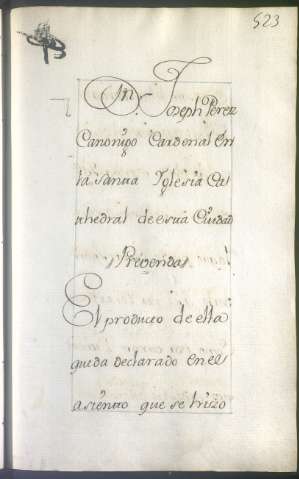 523
Dn. Joseph Perez
Canonigo Cardenal en
la santa Yglesia Ca
thedral de esta Ciudad
Prevenda
El producto de ella
queda declarado en el
asiento que se hizo